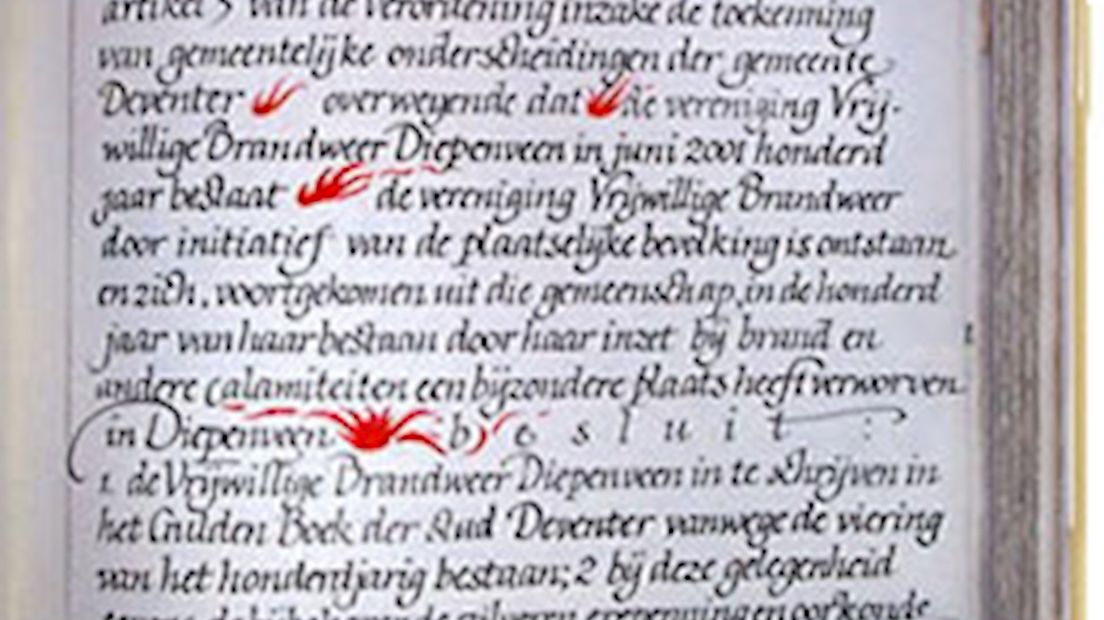 artikel 5 van de verordening inzake de toekenning
van gemeentelijke onderscheidingen der gemeente
Deventer overwegende dat de vereniging Vrij-
willige Brandweer Diepenveen in juni 2001 honderd
jaar bestaat de vereniging Vrijwillige Brandweer
door initiatief van de plaatselijke bevolking is ontstaan
en zich, voortgekomen uit die gemeenschap, in de honderd
jaar van haar bestaan door haar inzet bij brand en
andere calamiteiten een bijzondere plaats heeft verworven
in Diepenveen b e s l u i t :
1. de Vrijwillige Brandweer Diepenveen in te schrijven in
het Gulden Boek der Stad Deventer vanwege de viering
van het honderdjarig bestaan; 2 bij deze gelegenheid
tevens de bijbehorende zilveren erepenning en oorkonde